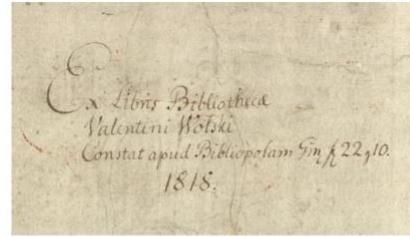 Ex Libris Bibliothecæ
Valentini Wolski
Constat apud Bibliopolam 22,10.
1818.